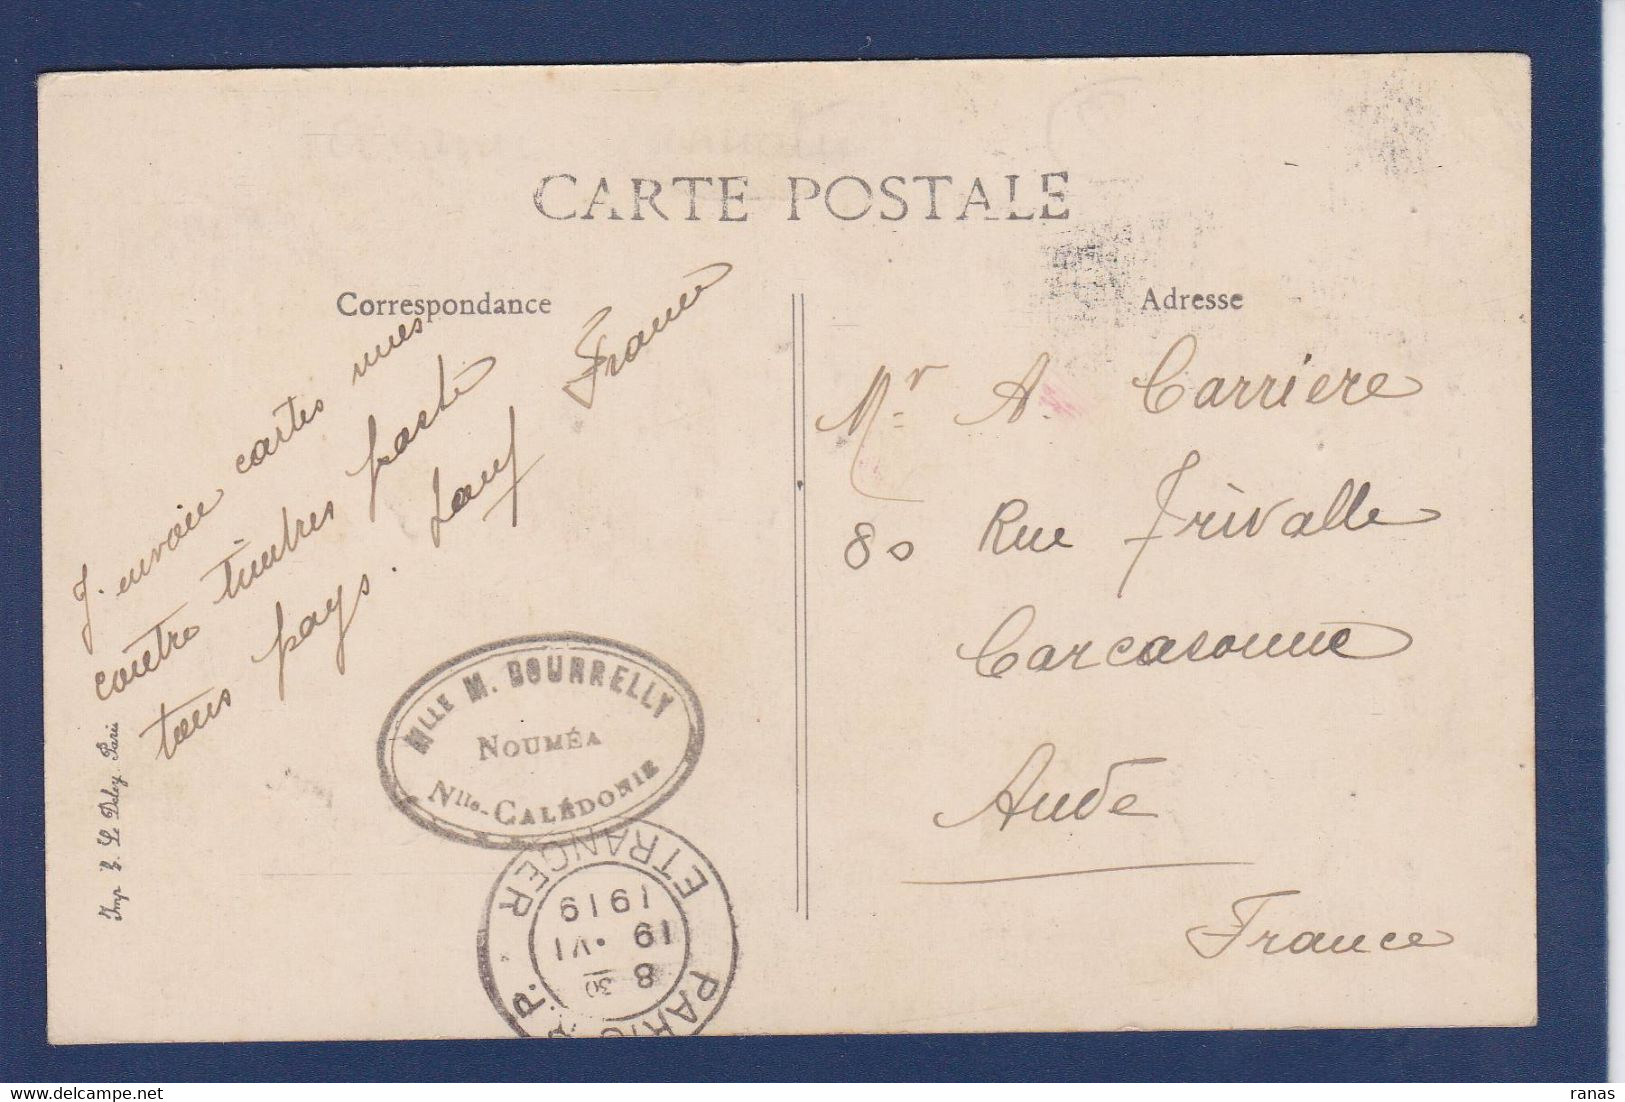 CARTE POSTALE
Correspondance
Adresse
J. envoie cartes vues
contre timbres poste
tous pays. Sauf France
Mr. A. Carriere
80 Rue Trivalle
Carcasonne
Aude
France
MLLE M. BOURRELLY
NOUMÉA
Nlle-CALÉDONIE
PARIS P.P. ETRANGER
8 30
19 • VI
1919
Imp. E. Le Deley. Paris
ranas